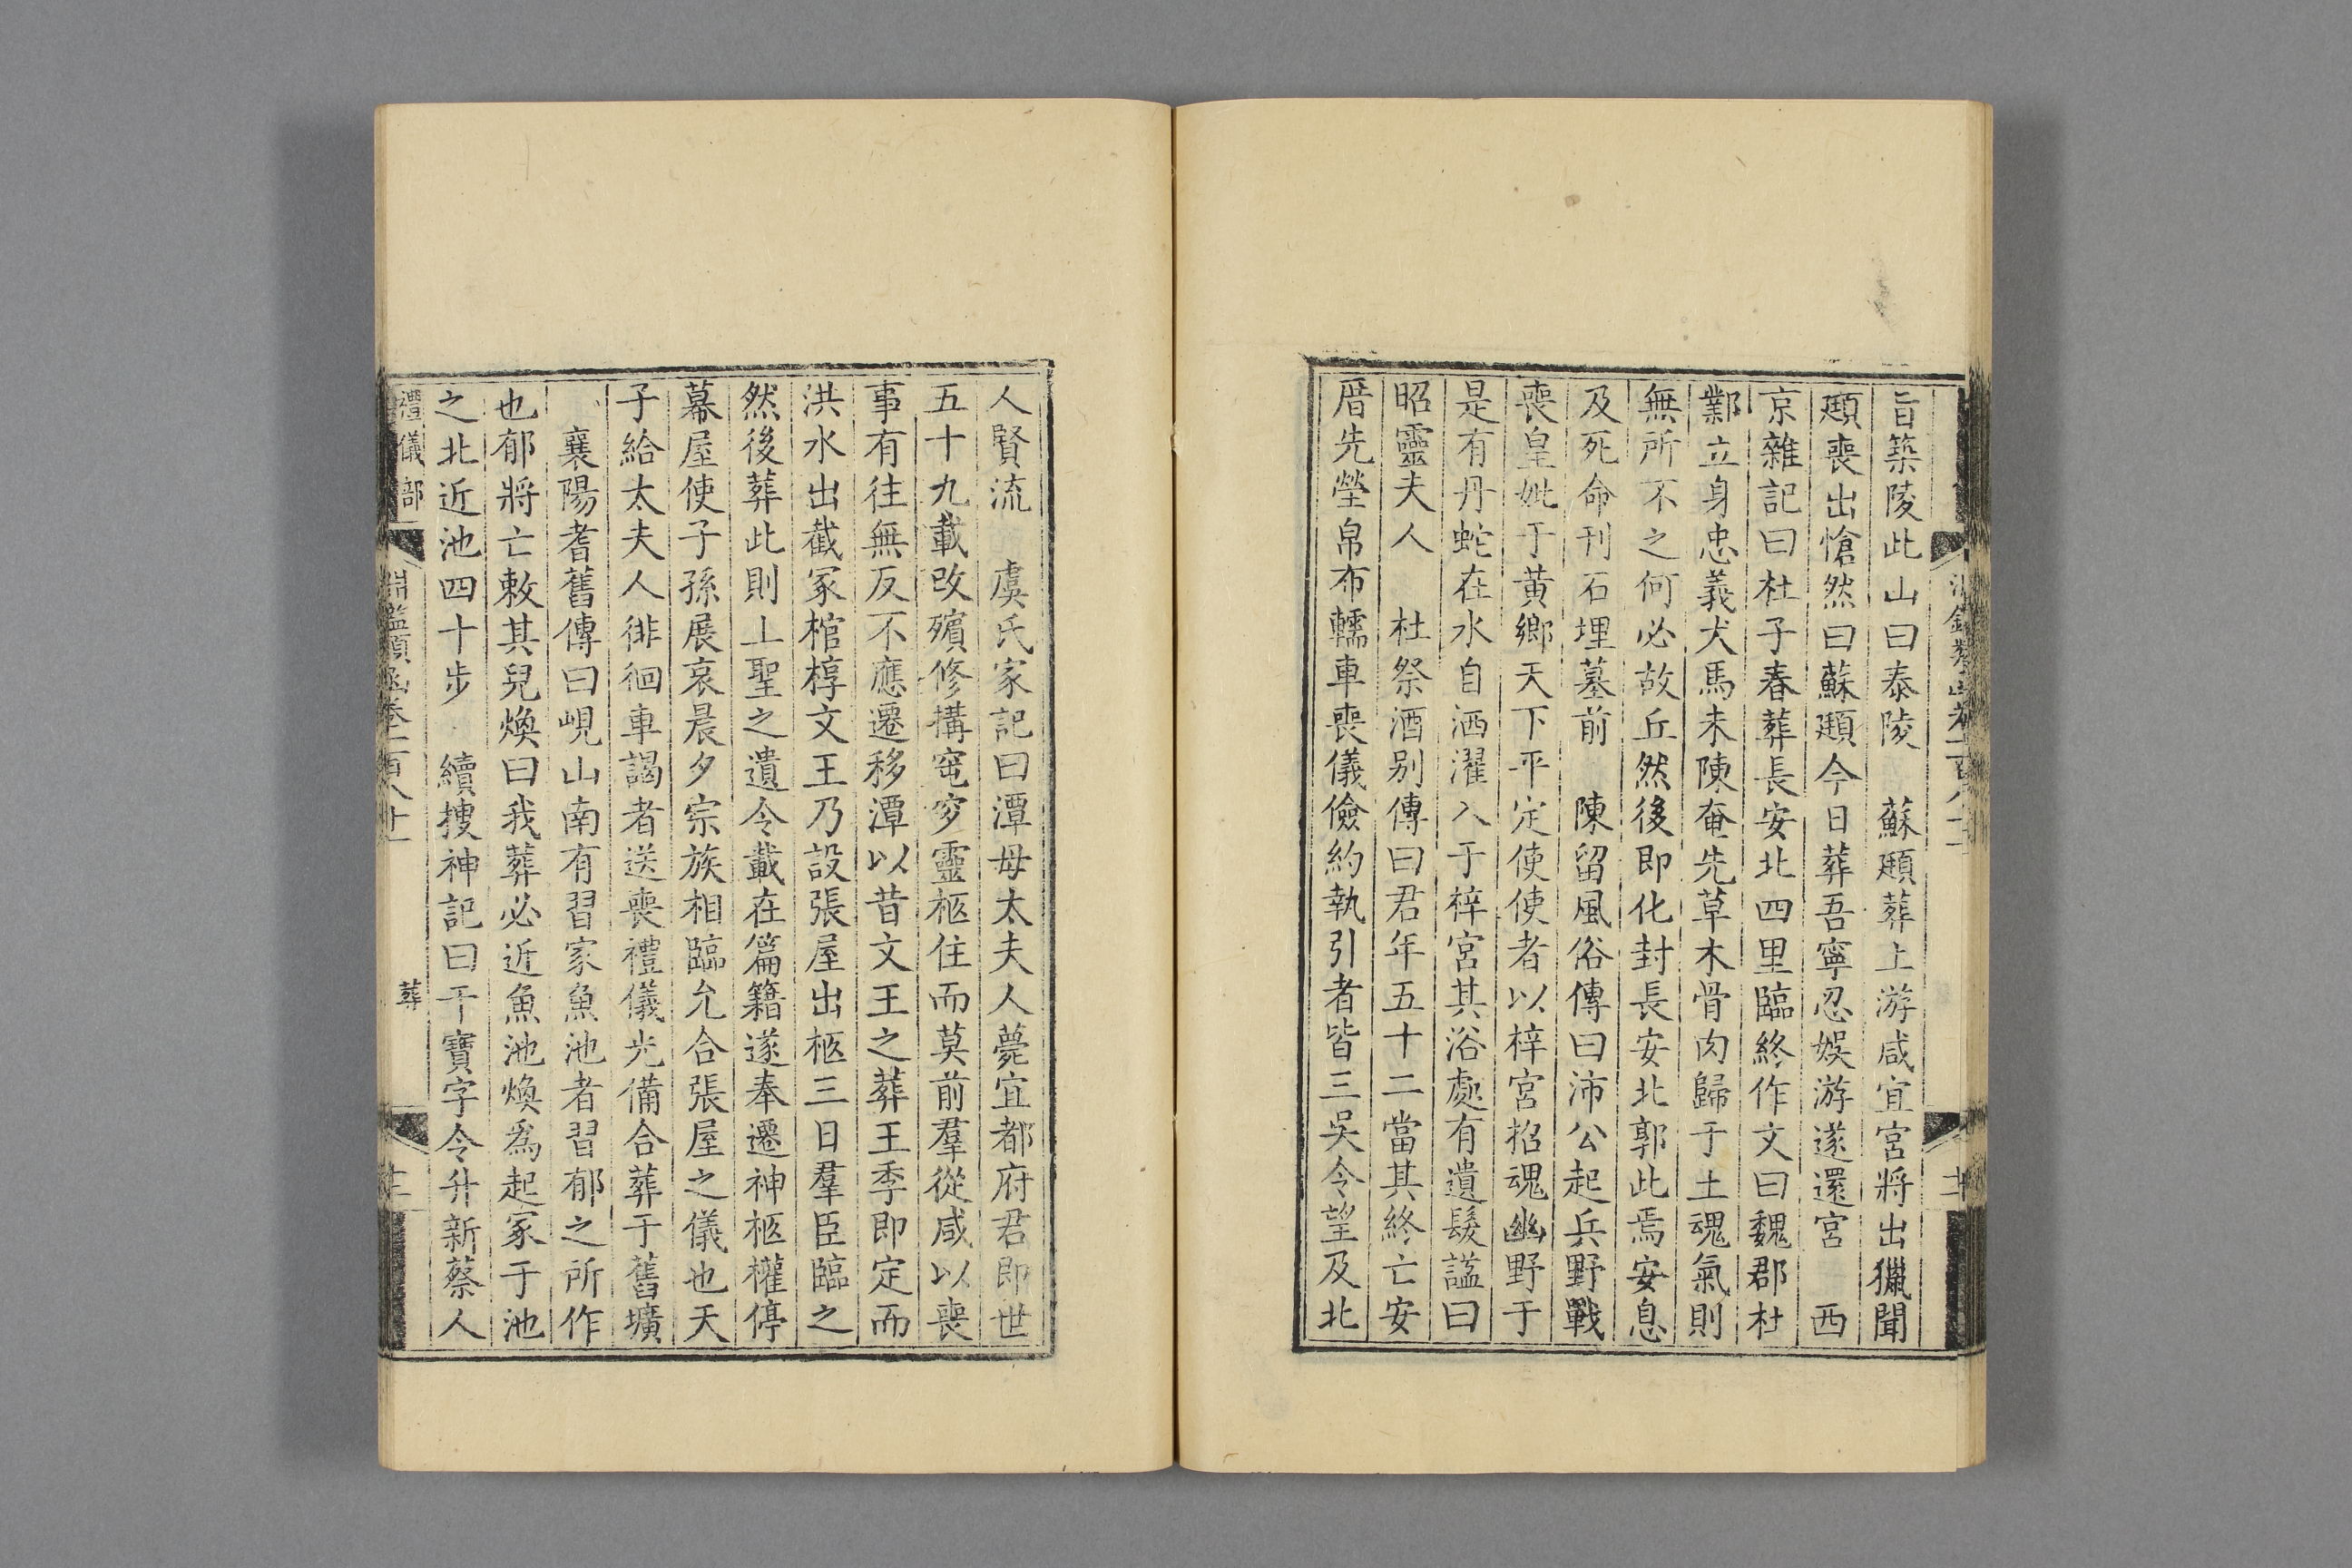 旨築陵此山曰泰陵　蘇頲葬上游咸宜宮將出獵聞
頲喪出愴然曰蘇頲今日葬吾寧忍娛游遂還宮　西
京雜記曰杜子春葬長安北四里臨終作文曰魏郡杜
鄴立身忠義犬馬未陳奄先草木骨肉歸于土魂氣則
無所不之何必故丘然後即化封長安北郭此焉安息
及死命刊石埋墓前　陳留風俗傳曰沛公起兵野戰
喪皇妣于黃鄉天下平定使使者以梓宮招魂幽野于
是有丹蛇在水自洒濯入于梓宮其浴處有遺髮諡曰
昭靈夫人　杜祭酒別傳曰君年五十二當其終亡安
厝先塋帛布轜車喪儀儉約執引者皆三吳令望及北
人賢流　虞氏家記曰潭母太夫人薨宜都府君即世
五十九載改殯修搆窀穸靈柩住而莫前羣從咸以喪
事有往無反不應遷移潭以昔文王之葬王季即定而
洪水出截冢棺椁文王乃設張屋出柩三日羣臣臨之
然後葬此則上聖之遺令載在篇籍遂奉遷神柩權停
幕屋使子孫展哀晨夕宗族相臨允合張屋之儀也天
子給太夫人徘徊車謁者送喪禮儀光備合葬于舊壙
襄陽耆舊傳曰峴山南有習家魚池者習郁之所作
也郁將亡敕其兒煥曰我葬必近魚池煥爲起冢于池
之北近池四十步　續搜神記曰干寶字令升新蔡人
禮儀部
淵鑑類函卷一百八十一
葬
十二